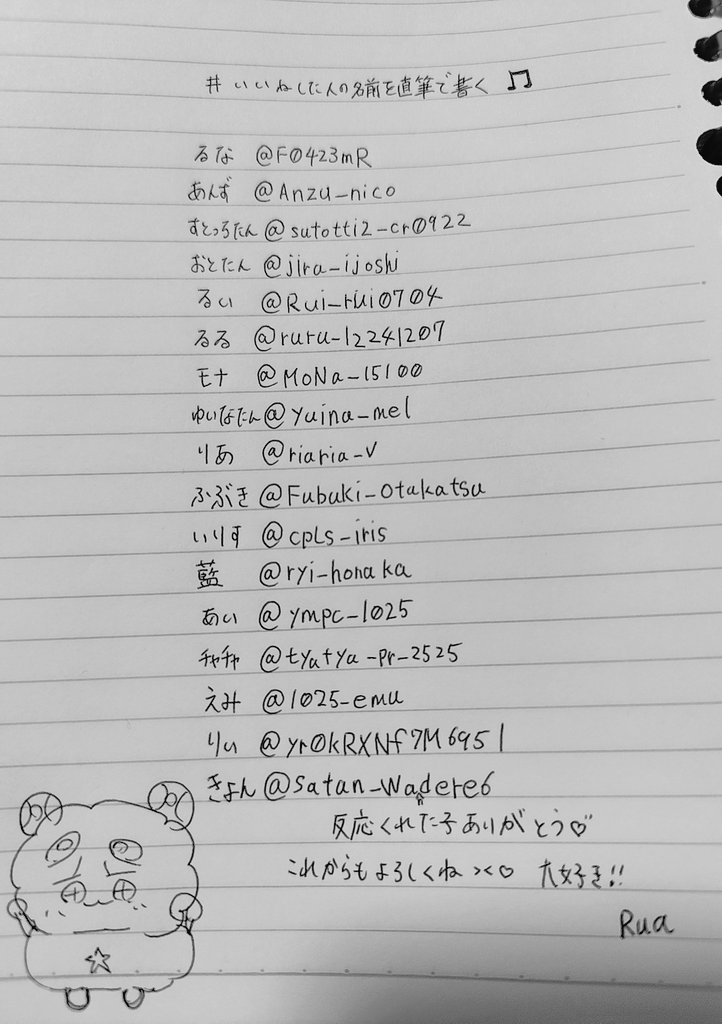 # いいねした人の名前を直筆で書く ♫
るな @F0423mR
あんず @Anzu_nico
すとっろたん @sutotti2_cr0922
おとたん @jira_ijoshi
るい @Rui_rui0704
るる @ruru_12241207
モナ @MoNa_15100
ゆいなたん @yuina_mel
りあ @riaria_v
ふぶき @Fubuki_otakatsu
いりす @cpls_iris
藍 @ryi_honaka
あい @ympc_1025
チャチャ @tyatya_pr_2525
えみ @1025_emu
りい @yr0kRXNf7M6951
きょん @satan_wadere6
反応くれた子ありがとう♡
これからもよろしくね ><♡ 大好き!!
Rua